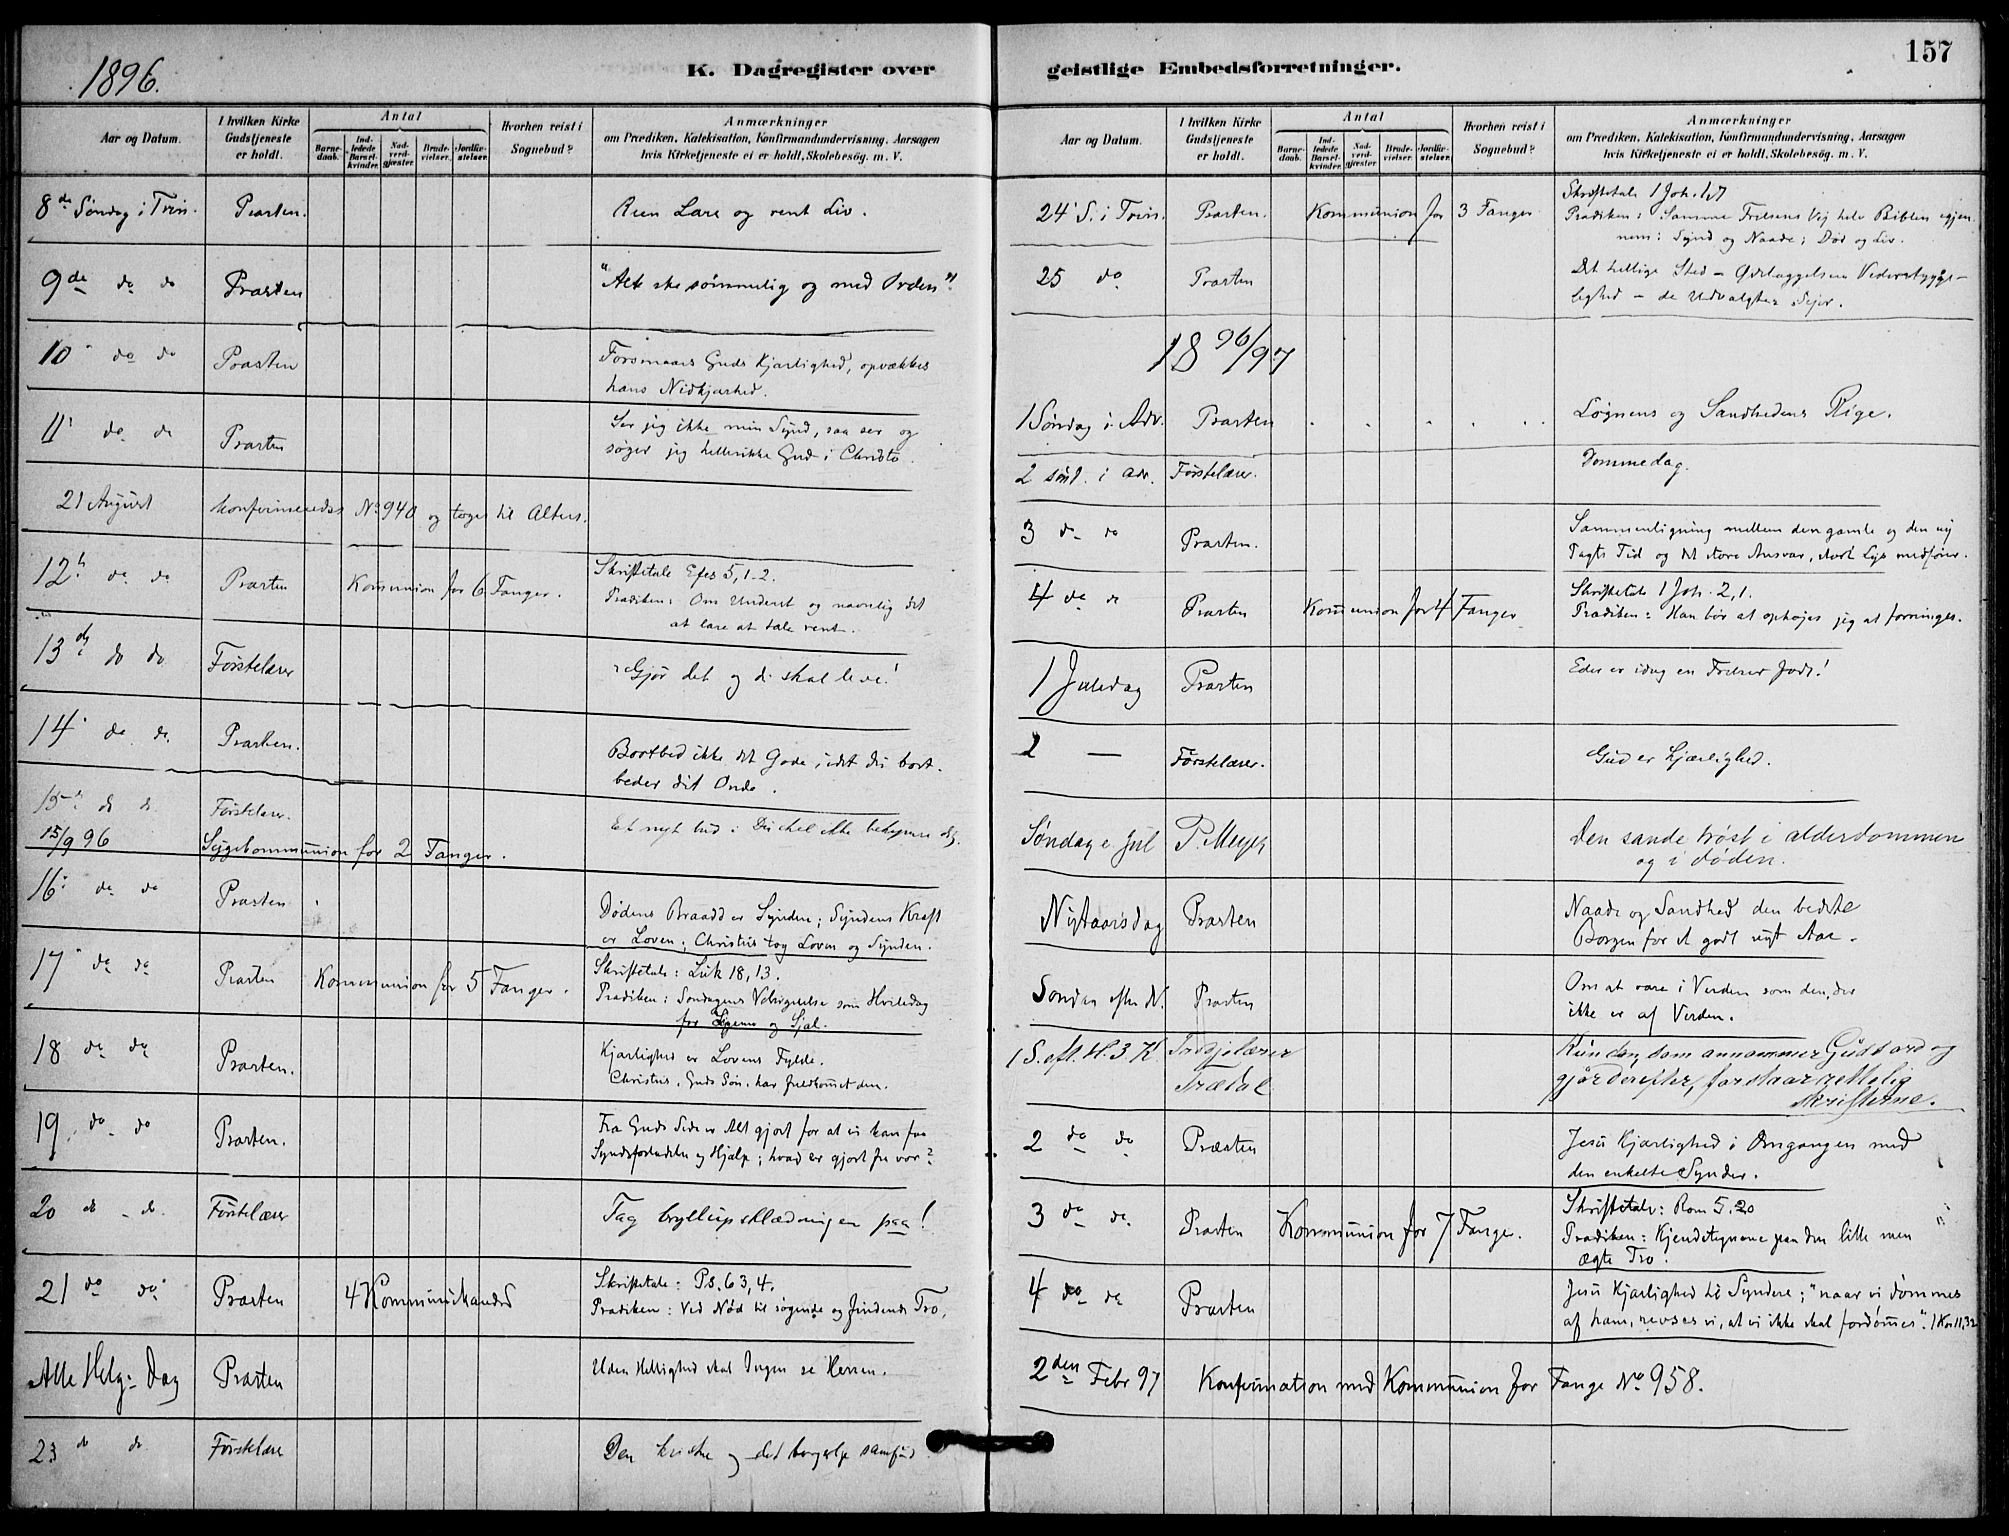 1896.
K. Dagregister over
Aar og Datum.
I hvilken Kirke Gudstjeneste er holdt.
Antal
Barne-daab.
Ind-ledede Barsel-kvinder.
Nad-verd-gjester.
Brude-vielser.
Jordfæ-stelser.
Hvorhen reist i Sognebud?
Anmærkninger
om Prædiken, Katekisation, Konfirmandundervisning, Aarsagen
hvis Kirketjeneste ei er holdt, Skolebesög. m. V.
8de Søndag i Trin. Præsten. Reen Lære og rent Liv.
9de do do Præsten "Alt ske sømmelig og med Orden".
10 do do Præsten Forsmaaes Guds Kjærlighed, opvækkes
hans Nidkjærhed.
11 do do Præsten Ser jeg ikke min Synd, saa ser og
søger jeg hellerikke Gud i Christo.
21 August konfirmeredes No 940 og toges til Alters.
12 do do Præsten Kommunion for 6 Fanger. Skriftetale Efes 5, 1-2.
Prædiken: Om Underet og navnlig det
at lære at tale rent.
13 do do Førstelærer "Gjør det og du skal leve!
14 do do. Præsten. Bortbed ikke det Gode, idet du bort-
beder dit Onde.
15 do do. Førstelærer. Et nyt bud: Du skal ikke bekymre dig.
15/9 96 Sygekommunion for 2 Fanger.
16 do do Præsten Dødens Braadd er Synden; Syndens Kraft
er Loven; Christus tog Loven og Synden.
17 do do Præsten Kommunion for 5 Fanger. Skriftetale: Luk 18, 13.
Prædiken: Søndagens Velsignelse som Hviledag
for Legeme og Sjæl.
18 do do Præsten. Kjærlighed er Lovens Fylde.
Christus, Guds Søn, har fuldkomet den.
19 do do Præsten. Fra Guds Side er Alt gjort for at vi kan faa
Syndsforladelse og Hjælp; hvad er gjort fra vor?
20 do do. Førstelærer Tag bryllupsklædningen paa!
21 do do Præsten 4 Kommunikanter Skriftetale: Ps. 63, 4.
Prædiken: Ved Nød til søgende og findende Tro.
Alle Helg: Dag Præsten Uden Hellighed skal Ingen se Herren.
23 do do Førstelærer Den kristne og det borgerlige samfund
157
geistlige Embedsforretninger.
Aar og Datum.
I hvilken Kirke Gudstjeneste er holdt.
Antal
Barne-daab.
Ind-ledede Barsel-kvinder.
Nad-verd-gjester.
Brude-vielser.
Jordfæ-stelser.
Hvorhen reist i Sognebud?
Anmærkninger
om Prædiken, Katekisation, Konfirmandundervisning, Aarsagen
hvis Kirketjeneste ei er holdt, Skolebesög. m. V.
24 S. i Trin. Præsten. Kommunion for 3 Fanger. Skriftetale 1 Joh. 1,7
Prædiken: Samme Frelsens Vej hele Biblen igjen-
nem: Synd og Naade; Død og Liv.
25 do Præsten Det hellige Sted – Ødelæggelsens Vederstygge-
lighed – de Udvalgtes Sejer.
1896/97
1 Søndag i Adv. Præsten Løgnens og Sandhedens Rige.
2 sönd. i adv. Førstelærer. Dommedag.
3 do do Præsten. Sammenligning mellem den gamle og den ny
Pagts Tid og det store Ansvar, stort Lys medfører.
4 do do Præsten Kommunion for 4 Fanger Skriftetale 1 Joh. 2, 1.
Prædiken: Han bør at ophøjes jeg at forringes.
1 Juledag Præsten Eder er idag en Frelser født!
2 — Førstelærer. Gud er kjærlighed.
Søndag e Jul P. Meyer Den sande trøst i alderdommen
og i døden.
Nytaarsdag Præsten Naade og Sandhed den bedste
Borgen for et godt nyt Aar.
Søndag efter N. Præsten Om at være i Verden som den, der
ikke er af Verden.
1 S. eft. H. 3 K. Tredjelærer
Trædal Kun den, som annammer Guds ord og
gjør derefter, forstaar rettelig
skrifterne.
2 do do Præsten Jesu Kjærlighed i Omgangen med
den enkelte Synder.
3 do do. Præsten Kommunion for 7 Fange. Skriftetale: Rom 5. 20
Prædiken: Kjendetegnene paa den lille men
ægte Tro.
4 do do Præsten Jesu Kjærlighed til Syndere; "naar vi dømmes
af ham, revses vi, at vi ikke skal fordømes". 1 Kor 11, 32
2den Febr 97 Konfirmation med Kommunion for Fange No 958.